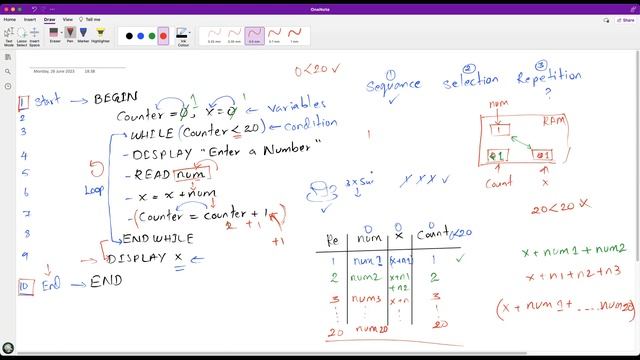 OneNote
Home Insert Draw View Tell me
Text Mode
Lasso Select
Insert Space
Eraser
Pen
Marker
Highlighter
Ink Colour
0.25 mm
0.35 mm
0.5 mm
0.7 mm
1 mm
Monday, 26 June 2023 18:38
0<20 ✓
① ② ③
Sequance Selection Repetition
✓ ?
1 Start → BEGIN
2 Counter = 0, x = 0 ← Variables
3 WHILE (Counter < 20) ← Condition
4 - DISPLAY "Enter a Number"
5 - READ num
Loop
6 - x = x + num
7 - (Counter = counter + 1)
2 + 1
+1
8 END WHILE
9 → DISPLAY x ←
10 End → END
num
RAM
1
Count x
20<20 x
3 x 5
Re num x Count <20
0 0 0
1 num1 x+n1 1 ✓
2 num2 x+n1 +n2 2
3 num3 x+n 3
20 num20 20
x + num1 + num2
x + n1 + n2 + n3
(x + num1 + .... num20)